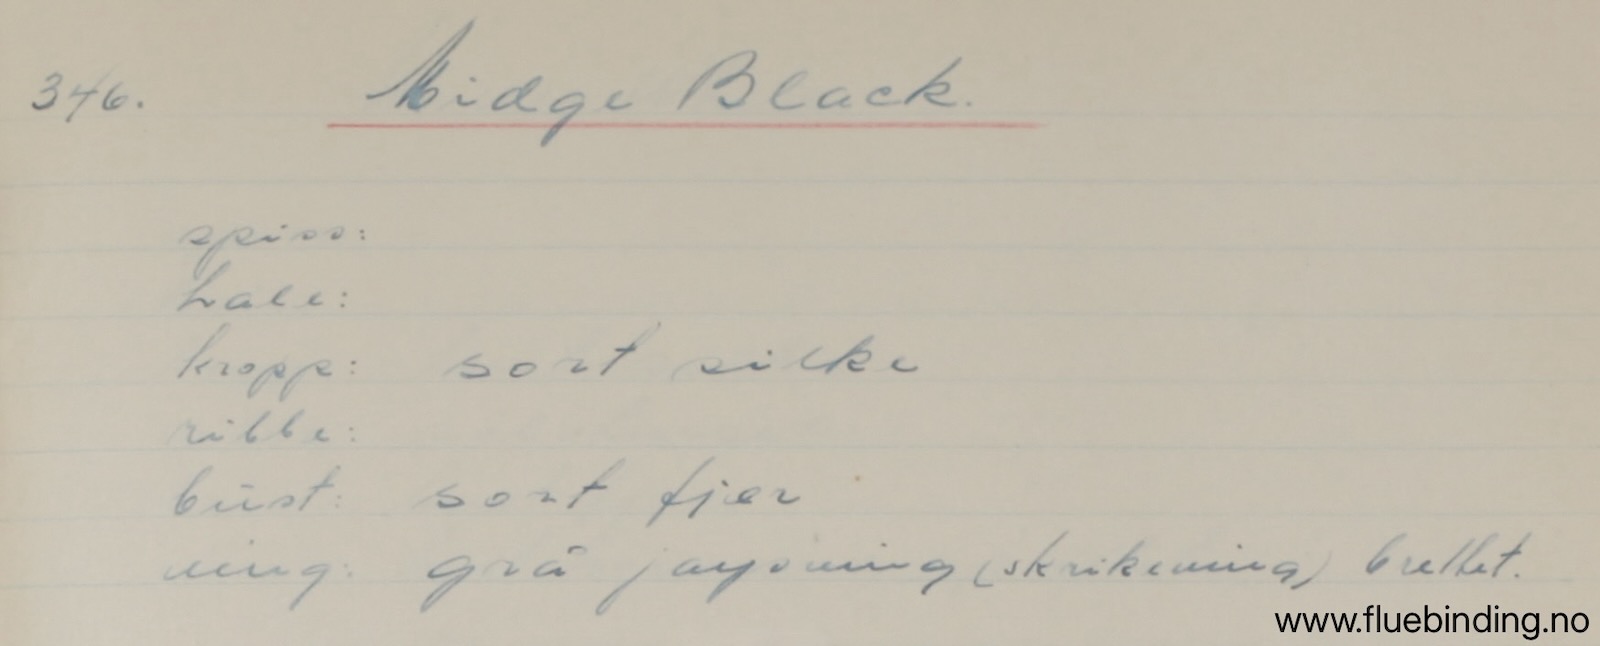 346. Midge Black.
spiss:
hale:
kropp: sort silke
ribbe:
büst: sort fjær
ving: grå jayswing (skrikeving) brettet.
www.fluebinding.no